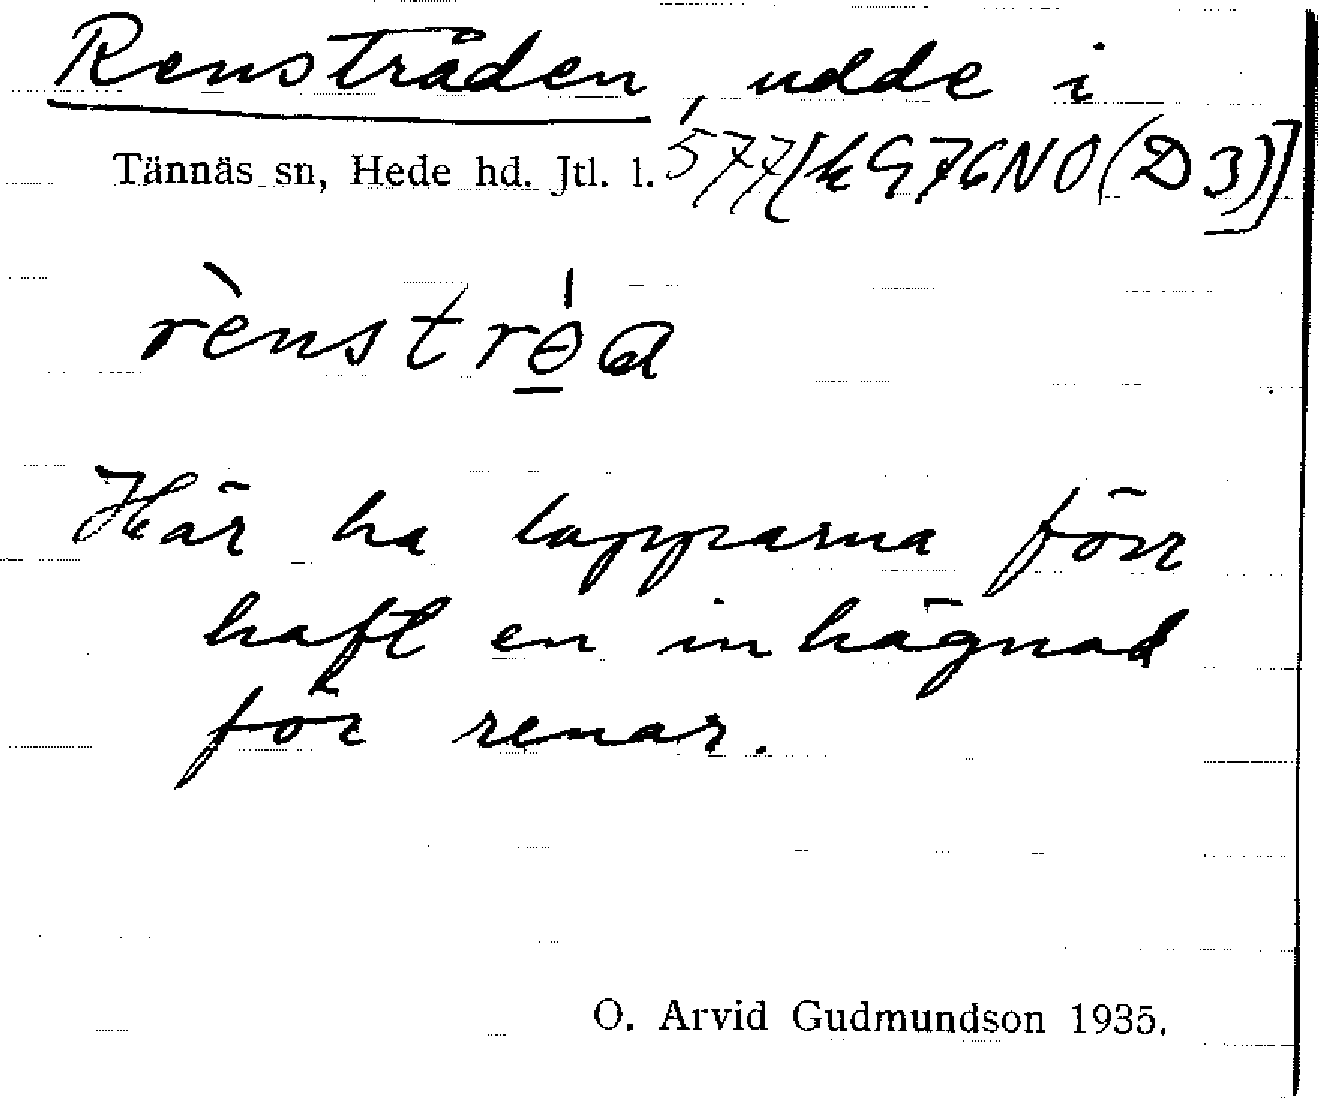 Rensträden, udde i
Tännäs sn, Hede hd. Jtl. l. 577[kG76NO(D3)]
rènstrɵ̠́a
Här ha lapparna förr
haft en inhägnad
för renar.
O. Arvid Gudmundson 1935.